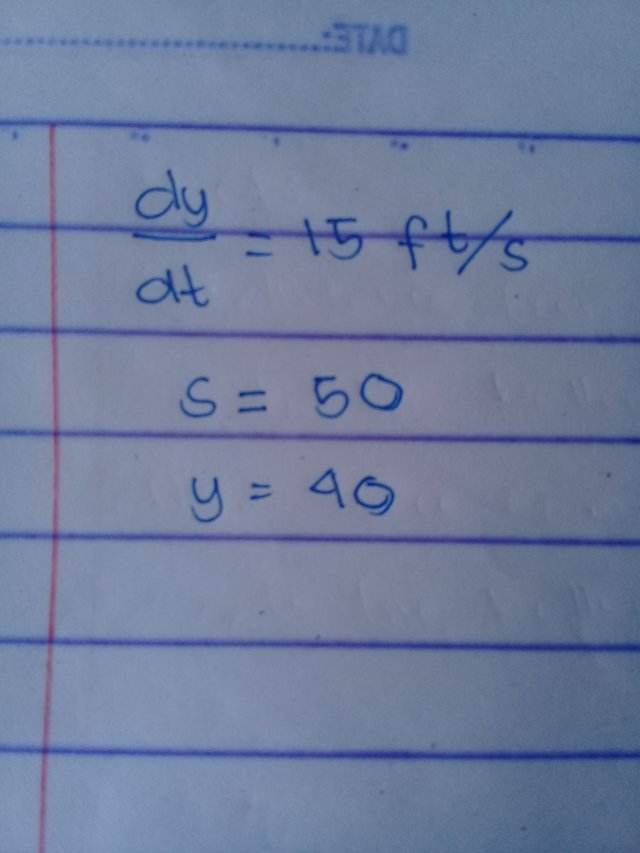 DATE:
dy/dt = 15 ft/s
s = 50
y = 40